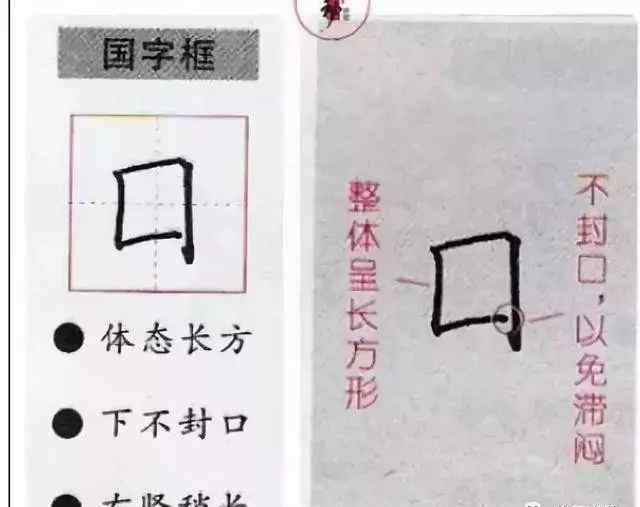 国字框
口
体态长方
下不封口
右竖稍长
整体呈长方形
口
不封口，以免滞闷